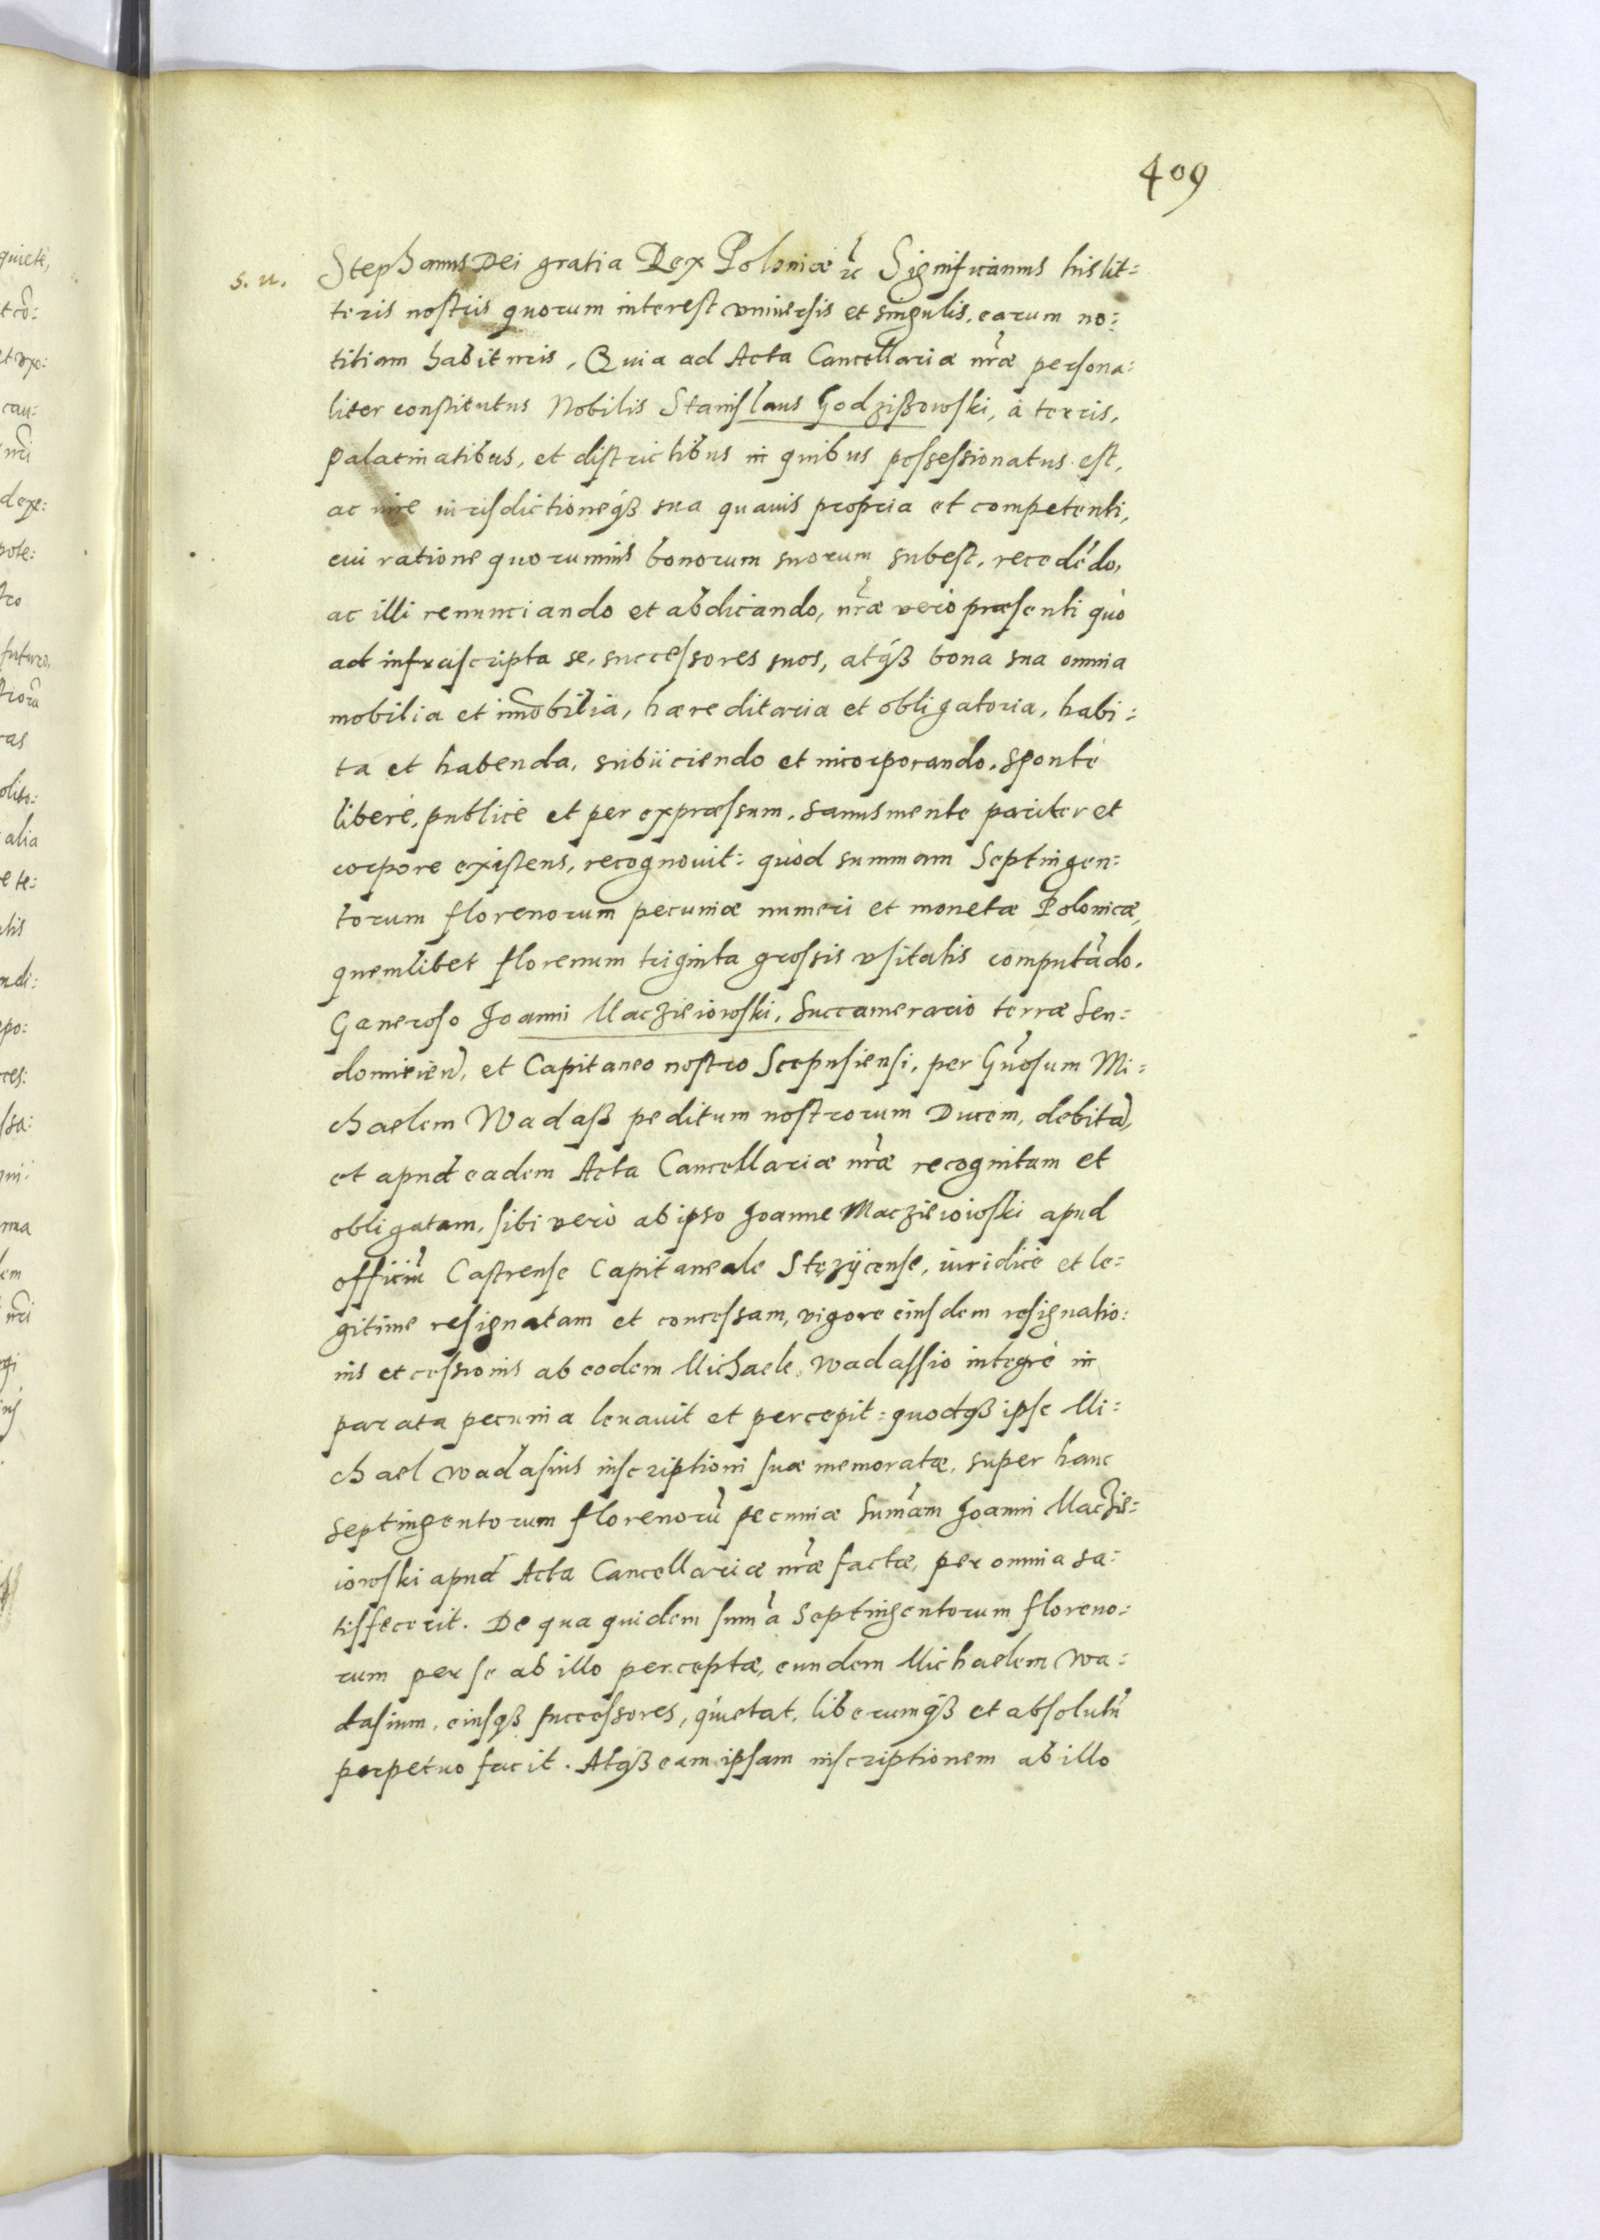 409
s. n. Stephanus Dei gratia Rex Poloniæ etc Significamus his lit=
teris nostris quorum interest vniuersis et singulis, earum no=
titiam habituris, Quia ad Acta Cancellariæ nr̃æ persona=
liter constitutus Nobilis Stanislaus Godzißowski, à terris,
Palatinatibus, et districtibus in quibus possessionatus est,
ac iure iurisdictioneqß sua quauis propria et competenti,
cui ratione quorumuis bonorum suorum subest, recedẽdo,
ac illi renunciando et abdicando, nr̃æ verò præsenti quò
ad infrascripta se, successores suos, atqß bona sua omnia
mobilia et im̃obilia, hæreditaria et obligatoria, habi=
ta et habenda, subijciendo et incorporando, sponte
liberè, publicè et per expræssum, sanus mente pariter et
corpore existens, recognouit: quòd summam Septingen=
torum florenorum pecuniæ numeri et monetæ Polonicæ,
quemlibet florenum triginta grossis vsitatis computãdo,
Generoso Joanni Maczieiowski, Succamerario terræ Sen=
domirien̄, et Capitaneo nostro Scepusiensi, per Gñosum Mi=
chaelem Wadaß peditum nostrorum Ducem, debitã,
et apud eadem Acta Cancellariæ nr̃æ recognitam et
obligatam, sibi verò ab ipso Joanne Maczieioiuski apud
officiũ Castrense Capitaneale Stęzÿcense, iuridicè et le=
gitime resignatam et concessam, vigore eiusdem resignatio=
nis et cessionis ab eodem Michaele Wadassio integrè in
parata pecunia leuauit et percepit: quodqß ipse Mi=
chael Wadasius inscriptioni suæ memoratæ, super hanc
septingentorum florenorũ pecuniæ sum̃am Joanni Maczie=
iowski apud Acta Cancellariæ nr̃æ factæ, per omnia sa=
tisfecerit. De qua quidem sum̃a Septingentorum floreno=
rum per se ab illo perceptæ, eundem Michaelem Wa=
dasium, eiusqß successores, quietat, liberumqß et absolutũ
perpetuo facit. Atqß eam ipsam inscriptionem ab illo